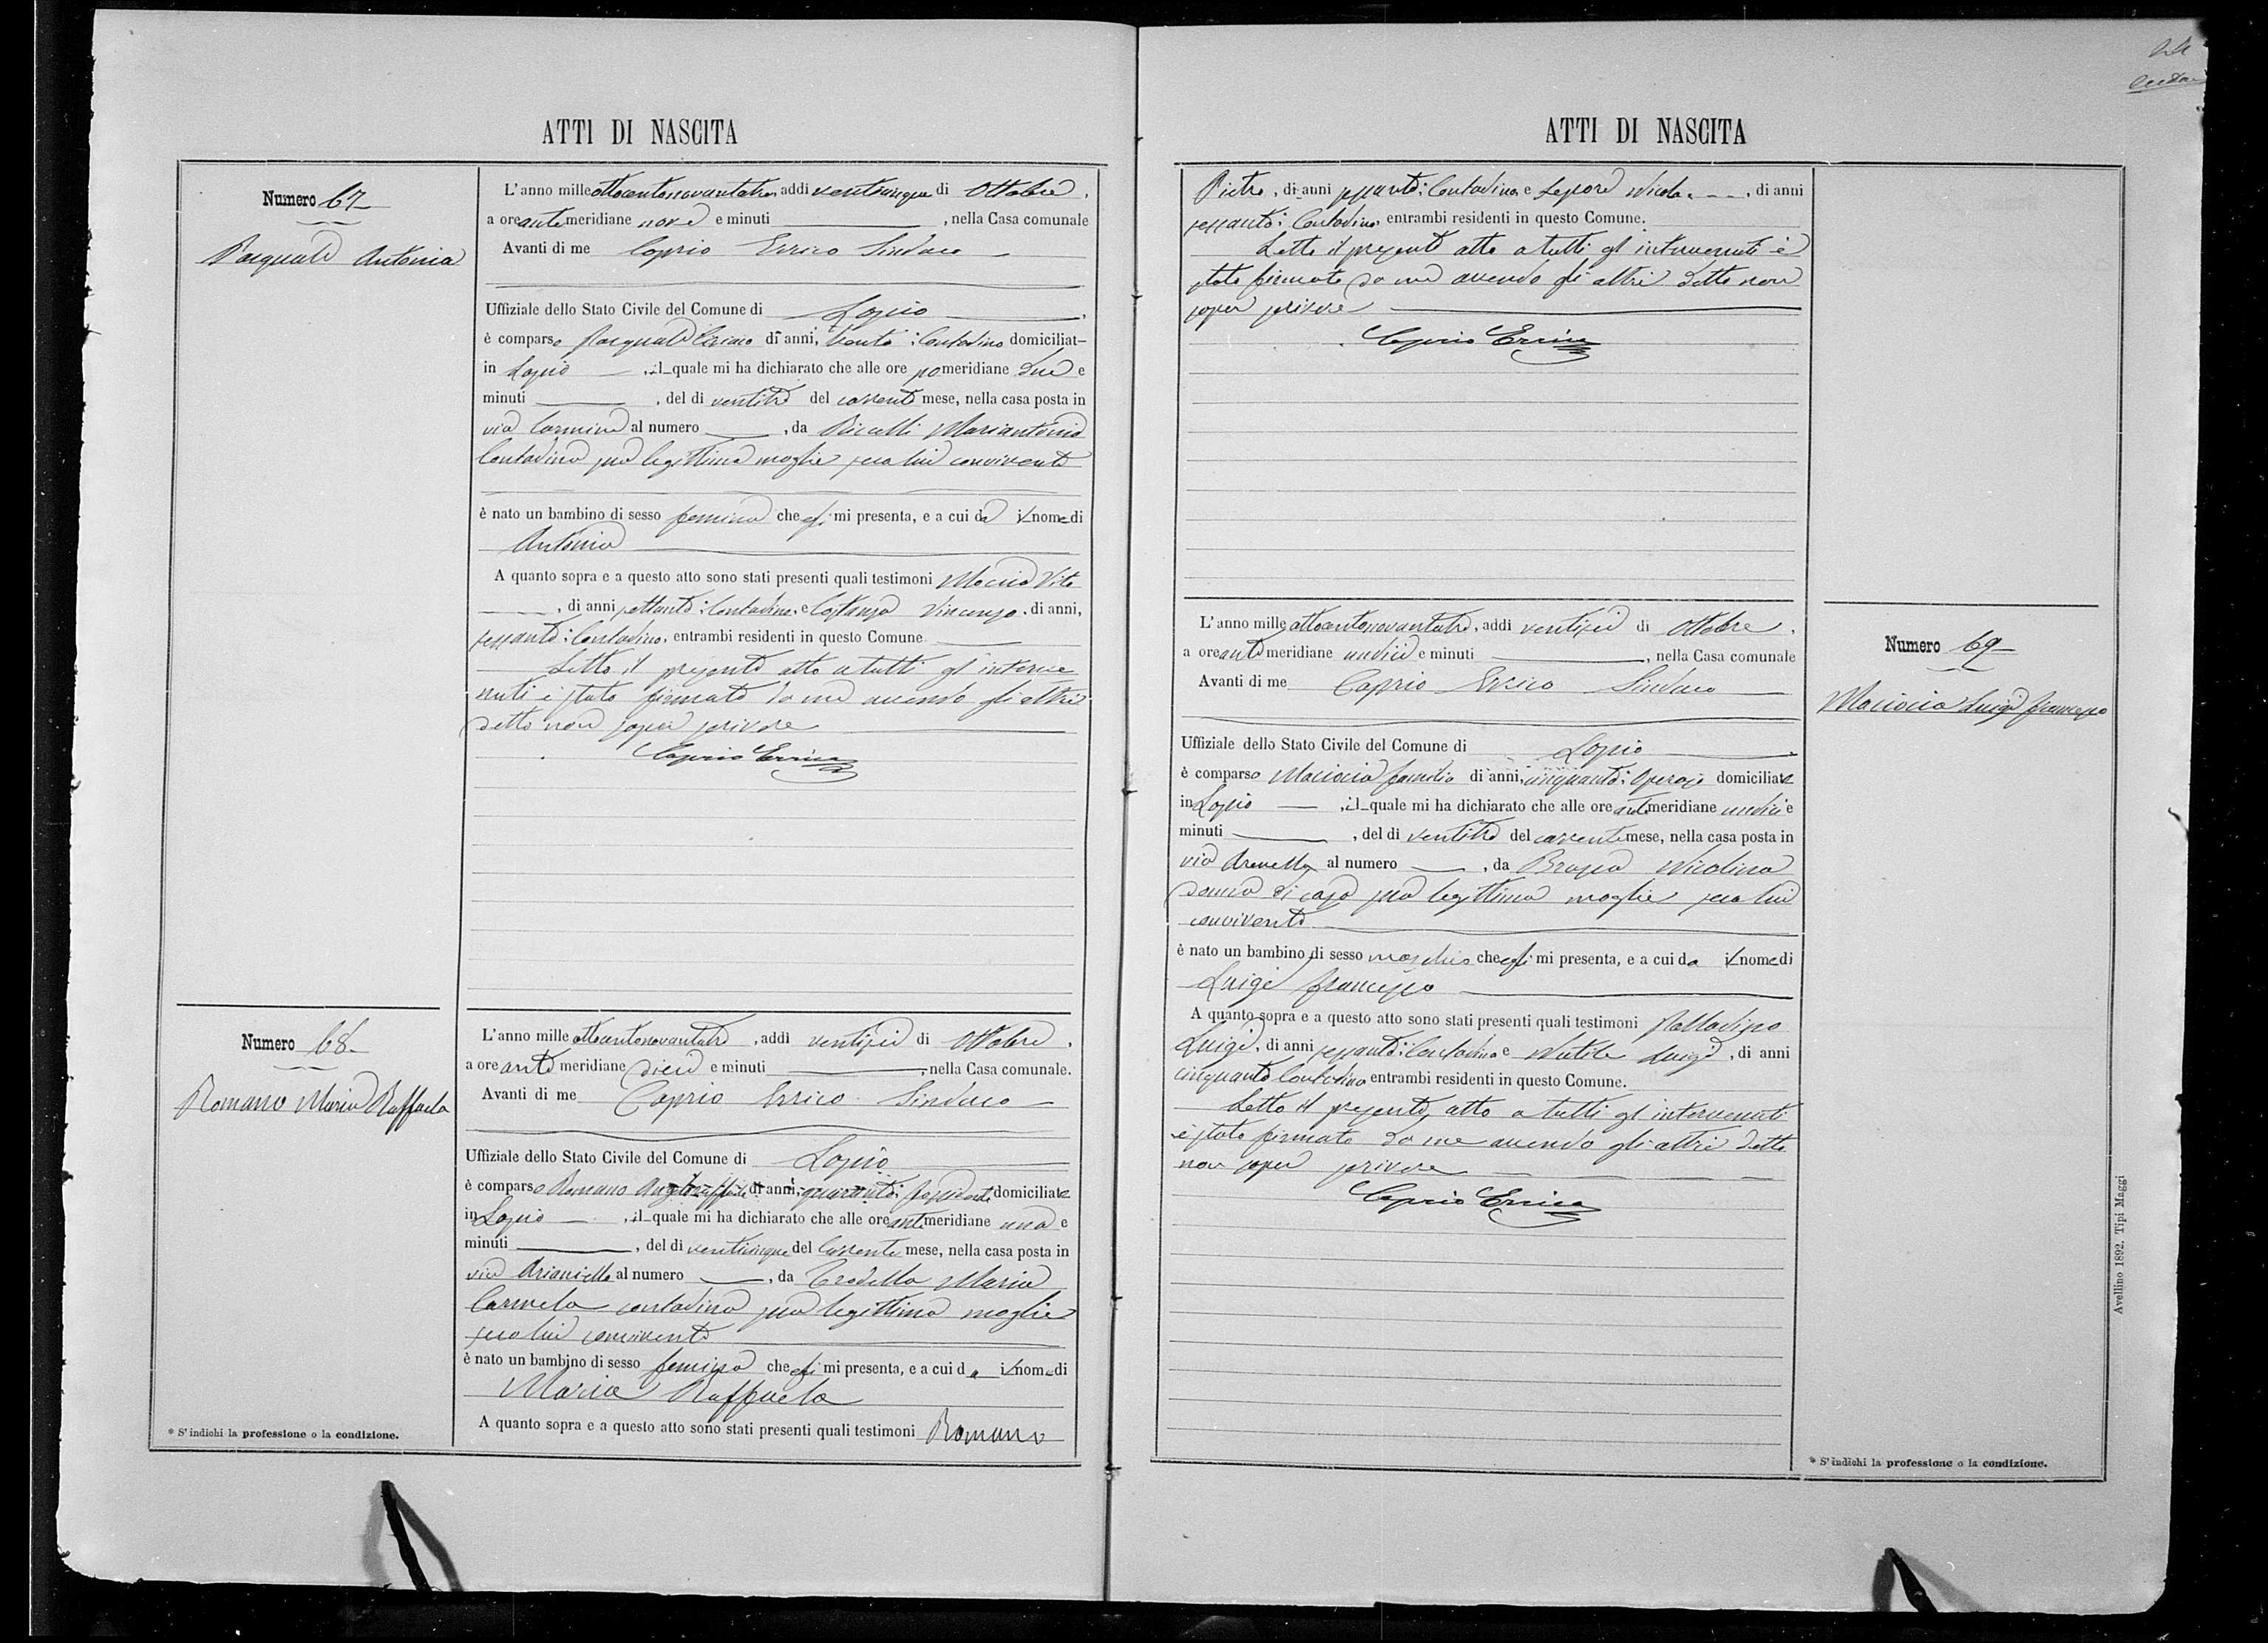 ATTI DI NASCITA
Numero 67
Pasquale Antonia
L'anno mille ottocentonovantatre, addì venticinque di Ottobre,
a ore antemeridiane nove e minuti , nella Casa comunale
Avanti di me Caprio Errico Sindaco
Uffiziale dello Stato Civile del Comune di Lapio,
è comparso Pasquale di anni, trenta; Contadino domiciliat
in Lapio, il quale mi ha dichiarato che alle ore pomeridiane due e
minuti , del dì ventitre del corrente mese, nella casa posta in
via Carmine al numero , da Riccelli Mariantonia
Contadina sua legittima moglie seco lui convivente
è nato un bambino di sesso femina che egli mi presenta, e a cui dà il nome di
Antonia
A quanto sopra e a questo atto sono stati presenti quali testimoni Vito
, di anni settanta; Contadino, e Costanza Vincenzo, di anni,
sessanta; Contadino, entrambi residenti in questo Comune
Letto il presente atto a tutti gl'interve
nuti è stato firmato da me avendo gli altri
detto non saper scrivere
Caprio Errico
Numero 68
Romano Maria Raffaela
L'anno mille ottocentonovantatre, addì ventisei di Ottobre,
a ore antemeridiane dieci e minuti , nella Casa comunale.
Avanti di me Caprio Errico Sindaco
Uffiziale dello Stato Civile del Comune di Lapio
è comparso Romano di anni, quaranta; possidente domiciliato
in Lapio, il quale mi ha dichiarato che alle ore antemeridiane una e
minuti , del dì venticinque del corrente mese, nella casa posta in
via Arianiello al numero , da Maria
Carmela contadina sua legittima moglie
seco lui convivente
è nato un bambino di sesso femina che egli mi presenta, e a cui da il nome di
Maria Raffaela
A quanto sopra e a questo atto sono stati presenti quali testimoni Romano
* S'indichi la professione o la condizione.
ATTI DI NASCITA
Pietro, di anni sessanta; Contadino, e Lepore Nicola, di anni
sessanta; Contadino, entrambi residenti in questo Comune.
Letto il presente atto a tutti gl'intervenuti è
stato firmato da me avendo gli altri detto non
saper scrivere
Caprio Errico
L'anno mille ottocentonovantatre, addì ventisei di Ottobre,
a ore antemeridiane undici e minuti , nella Casa comunale
Avanti di me Caprio Errico Sindaco
Uffiziale dello Stato Civile del Comune di Lapio
è comparso Maciocia di anni, cinquanta; Operaio domiciliato
in Lapio, il quale mi ha dichiarato che alle ore antemeridiane undici e
minuti , del dì ventitre del corrente mese, nella casa posta in
via al numero , da Nicolina
donna di casa sua legittima moglie seco lui
convivente
è nato un bambino di sesso maschio che egli mi presenta, e a cui da il nome di
Luigi Francesco
A quanto sopra e a questo atto sono stati presenti quali testimoni Palladino
Luigi, di anni sessanta; Contadino e Nutile Luigi, di anni
cinquanta Contadino entrambi residenti in questo Comune.
Letto il presente atto a tutti gl'intervenuti
è stato firmato da me avendo gli altri detto
non saper scrivere
Caprio Errico
Numero 69
Maciocia Luigi Francesco
* S'indichi la professione o la condizione.
Avellino 1892. Tipi Maggi